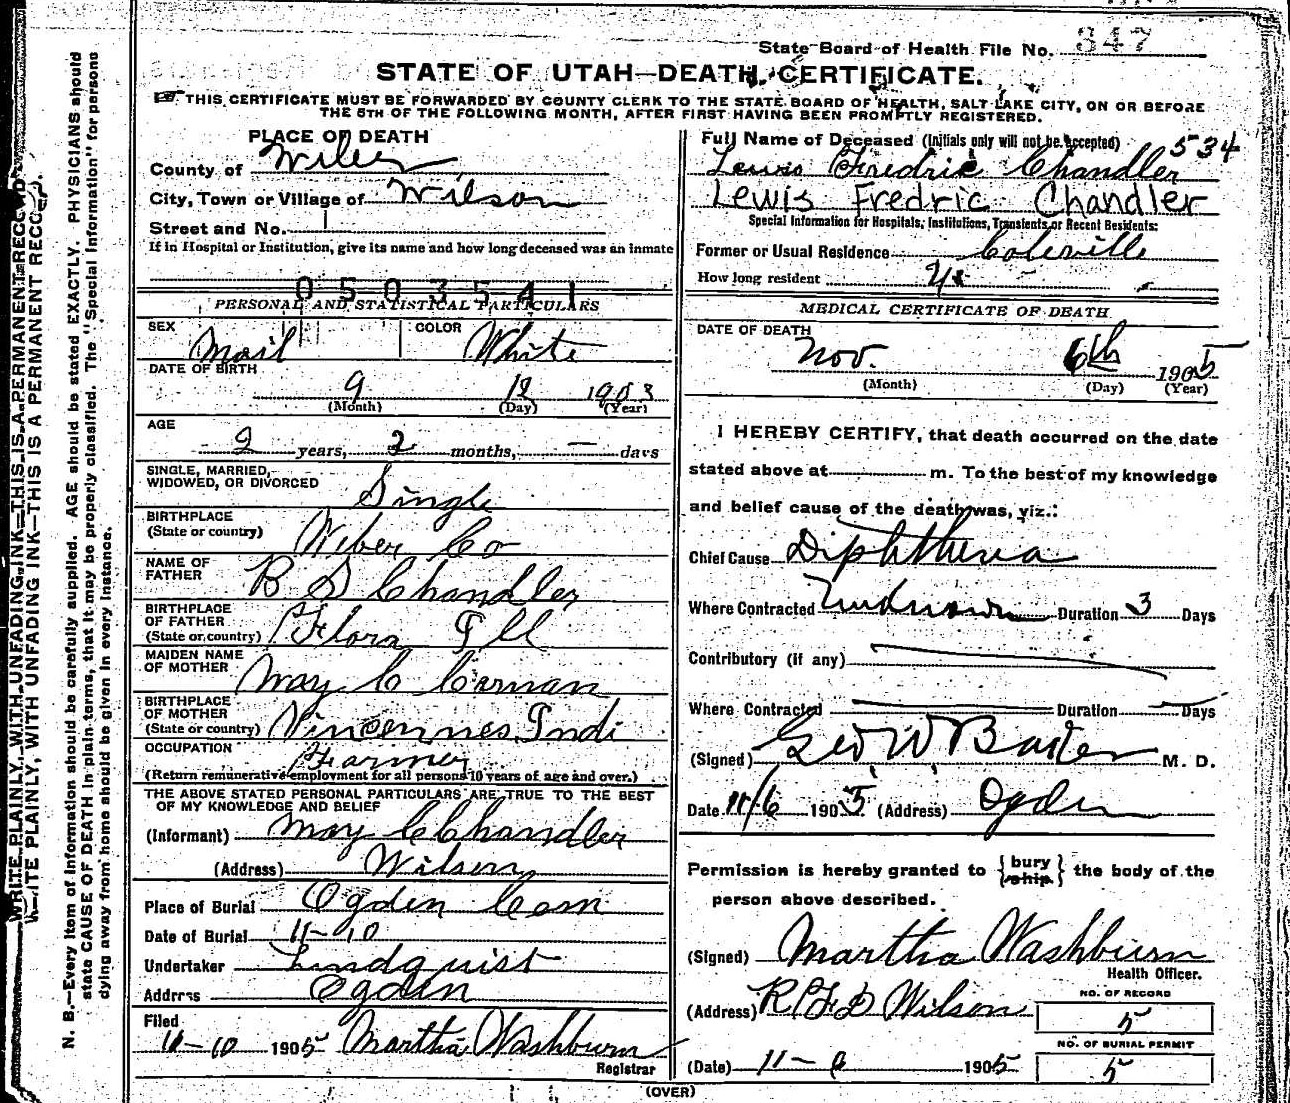 State Board of Health File No. 347
STATE OF UTAH—DEATH CERTIFICATE.
THIS CERTIFICATE MUST BE FORWARDED BY COUNTY CLERK TO THE STATE BOARD OF HEALTH, SALT LAKE CITY, ON OR BEFORE
THE 5TH OF THE FOLLOWING MONTH, AFTER FIRST HAVING BEEN PROMPTLY REGISTERED.
WRITE PLAINLY, WITH UNFADING INK—THIS IS A PERMANENT RECORD.
N. B.—Every item of information should be carefully supplied. AGE should be stated EXACTLY. PHYSICIANS should
state CAUSE OF DEATH in plain terms, that it may be properly classified. The "Special Information" for persons
dying away from home should be given in every instance.
PLACE OF DEATH
County of Wiber
City, Town or Village of Wilson
Street and No. 1
If in Hospital or Institution, give its name and how long deceased was an inmate
0503541
PERSONAL AND STATISTICAL PARTICULARS
SEX Mail COLOR White
DATE OF BIRTH
9 12 1903
(Month) (Day) (Year)
AGE
2 years, 2 months, — days
SINGLE, MARRIED,
WIDOWED, OR DIVORCED Single
BIRTHPLACE
(State or country) Wiber Co
NAME OF
FATHER B S Chandler
BIRTHPLACE
OF FATHER
(State or country) Flora Ill
MAIDEN NAME
OF MOTHER May C Carnan
BIRTHPLACE
OF MOTHER
(State or country) Vincennes Indi
OCCUPATION Farmer
(Return remunerative employment for all persons 10 years of age and over.)
THE ABOVE STATED PERSONAL PARTICULARS ARE TRUE TO THE BEST
OF MY KNOWLEDGE AND BELIEF
(Informant) May C Chandler
(Address) Wilson
Place of Burial Ogden Cem
Date of Burial 11-10
Undertaker Lindquist
Address Ogden
Filed
11-10 1905 Martha Washburn
Registrar
Full Name of Deceased (Initials only will not be accepted) 534
Lewis Fredric Chandler
Lewis Fredric Chandler
Special Information for Hospitals, Institutions, Transients or Recent Residents:
Former or Usual Residence Coleville
How long resident
MEDICAL CERTIFICATE OF DEATH
DATE OF DEATH
Nov. 6th 1905
(Month) (Day) (Year)
I HEREBY CERTIFY, that death occurred on the date
stated above at m. To the best of my knowledge
and belief cause of the death was, viz.:
Chief Cause Diphtheria
Where Contracted Unknown Duration 3 Days
Contributory (if any)
Where Contracted Duration Days
(Signed) Geo. W. Baker M. D.
Date 11/6 1905. (Address) Ogden
Permission is hereby granted to { bury
ship } the body of the
person above described.
(Signed) Martha Washburn
Health Officer.
(Address) R F D Wilson
NO. OF RECORD
5
NO. OF BURIAL PERMIT
5
(Date) 11-9 1905
(OVER)